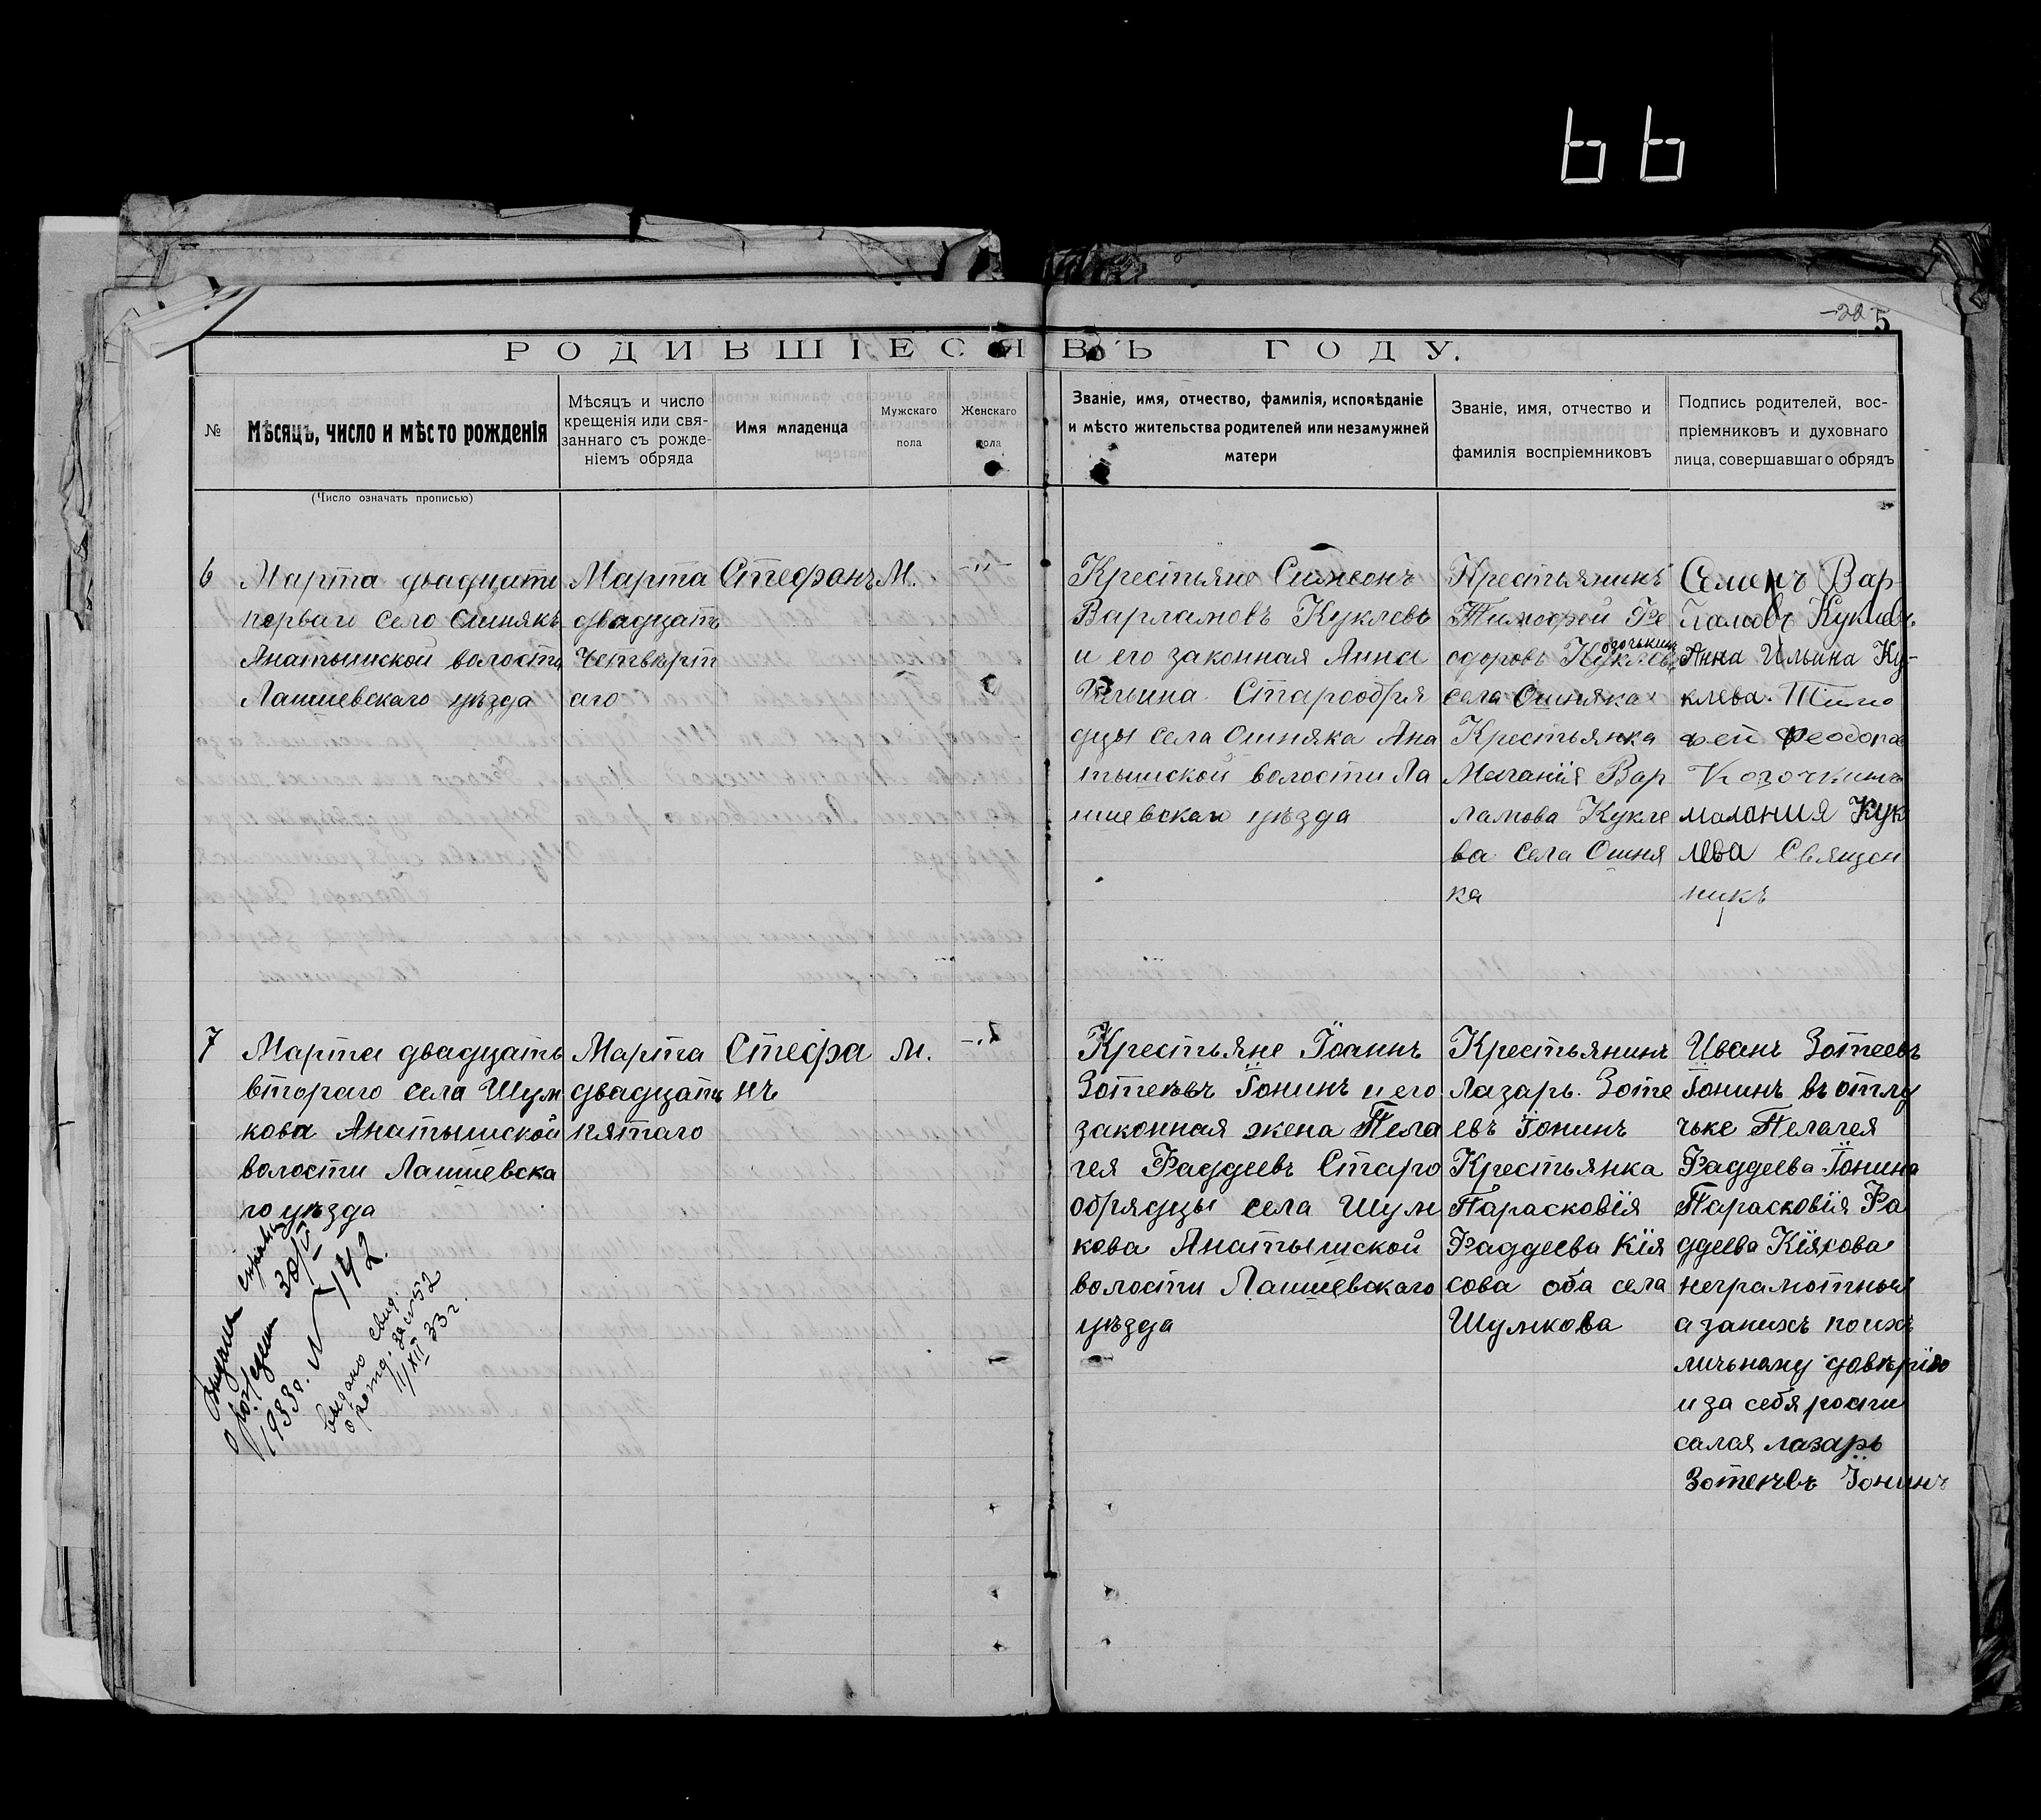 -22 5
РОДИВШІЕСЯ ВЪ ГОДУ.
№
Мѣсяцъ, число и мѣсто рожденія
(Число означать прописью)
Мѣсяцъ и число
крещенія или свя-
заннаго съ рожде-
ніемъ обряда
Имя младенца
Мужскаго
пола
Женскаго
пола
Званіе, имя, отчество, фамилія, исповѣданіе
и мѣсто жительства родителей или незамужней
матери
Званіе, имя, отчество и
фамилія воспріемниковъ
Подпись родителей, вос-
пріемниковъ и духовнаго
лица, совершавшаго обрядъ
6
Марта двадцати
перваго село Ошнякъ
Анатышской волости
Лаишевскаго уѣзда
Марта
двадцать
Четвѣрт
аго
Стефанъ
М.
-"-
Крестьяне Симеонъ
Варламовъ Куклевъ
и его законная Анна
Ильина Старообря
дцы села Ошняка Ана
тышской волости Ла
ишевскаго уѣзда
Крестьянинъ
Тимофей Фе
одоровъ Куклевъ
села Ошняка
Крестьянка
Меланія Вар
ламова Кукле
ва села Ошня
ка
Семенъ Вар
Куклевъ
Анна Ильина Ку-
клева. Тимо
фей Феодоров
Козочкинъ
малания Кук
лева Священ
никъ
7
Марта двадцать
втораго села Шум
кова Анатышской
волости Лаишевска
го уѣзда
Марта
двадцать
пятаго
Стефа
нъ
м.
Крестьяне Іоаннъ
Зотеѣвъ Іонинъ и его
законная жена Пела
гея Фаддеевъ Старо
обрядцы села Шум
кова Анатышской
волости Лаишевскаго
уѣзда
Крестьянинъ
Лазарь Зоте
евъ Іонинъ
Крестьянка
Парасковія
Фаддеева Кія
сова оба села
Шумкова
Иванъ Зотеевъ
Іонинъ въ отлу
чьке Пелагея
Фаддеева Іонина
Парасковія Фа
ддеева Кіясова
неграмотныи
а занихъ поихъ
личьному довѣрію
и за себя роспи
салая лазарь
Зотеѣвъ Іонинъ
Выдана справка
о рождении 30/V
1933г. N 142.
выдано свид.
о рожд. за N 52
11/XII 33г.